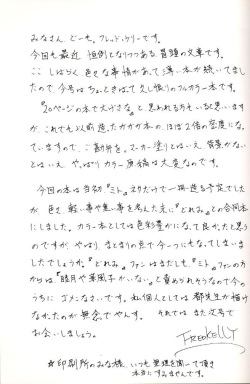 みなさん、どーも。フレッド・ケリーです。
今回も最近恒例となりつつある冒頭の文章です。
ここしばらく、色々な事情があって薄い本が続いてまし
たので、今号はちょときばって久し振りのフルカラー本です。
『20ページの本で大げさな』と思われる方もいると思います
が、これでも以前迄のカカカ本の、ほぼ2倍の密度にな
っていますので、ご勘弁を。マーカー塗りとはいえ、背景がない
とはいえ、やっぱりカラー原稿は大変なのです。
今回の本は当初『ミト』ネタだけで一冊造る予定でした
が、色々、軽い事や重い事を考えた末に『どれみ』との合同本
にしました。カラー本としては色彩豊かになって良かったと思う
のですが、やはり、まとまりの点で今一つにもなってしまいま
したでしょうか。『どれみ』ファンはまだしも、『ミト』ファンの方
からは「睦月や葉風子がいない」と責められそうなので今の
うちにゴメンなさいです。私個人としては都先生が描け
なかったのが無念でやんす。それではまた次号で
お会いしましょう。
FREDKELLY
☆印刷所のみな様、いつも無理を聞いて頂き
本当にすみませんです。